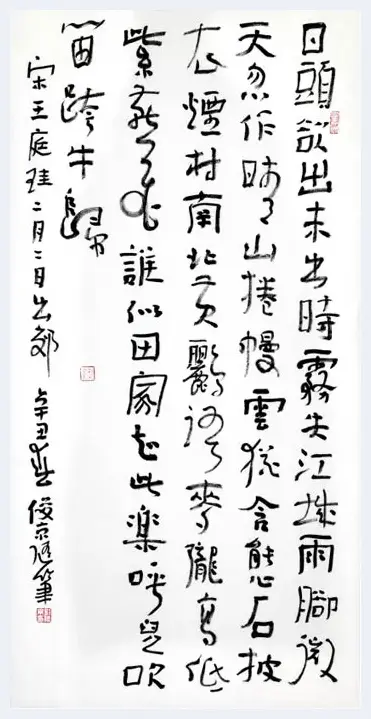 日頭欲出未出時霧失江城雨腳微
天忽作晴山捲幔雲猶含態石披
衣煙村南北黃鸝語麥隴高低
紫燕飛誰似田家知此樂呼兒吹
笛跨牛歸
宋王庭珪二月二日出郊 辛丑春俊京随筆